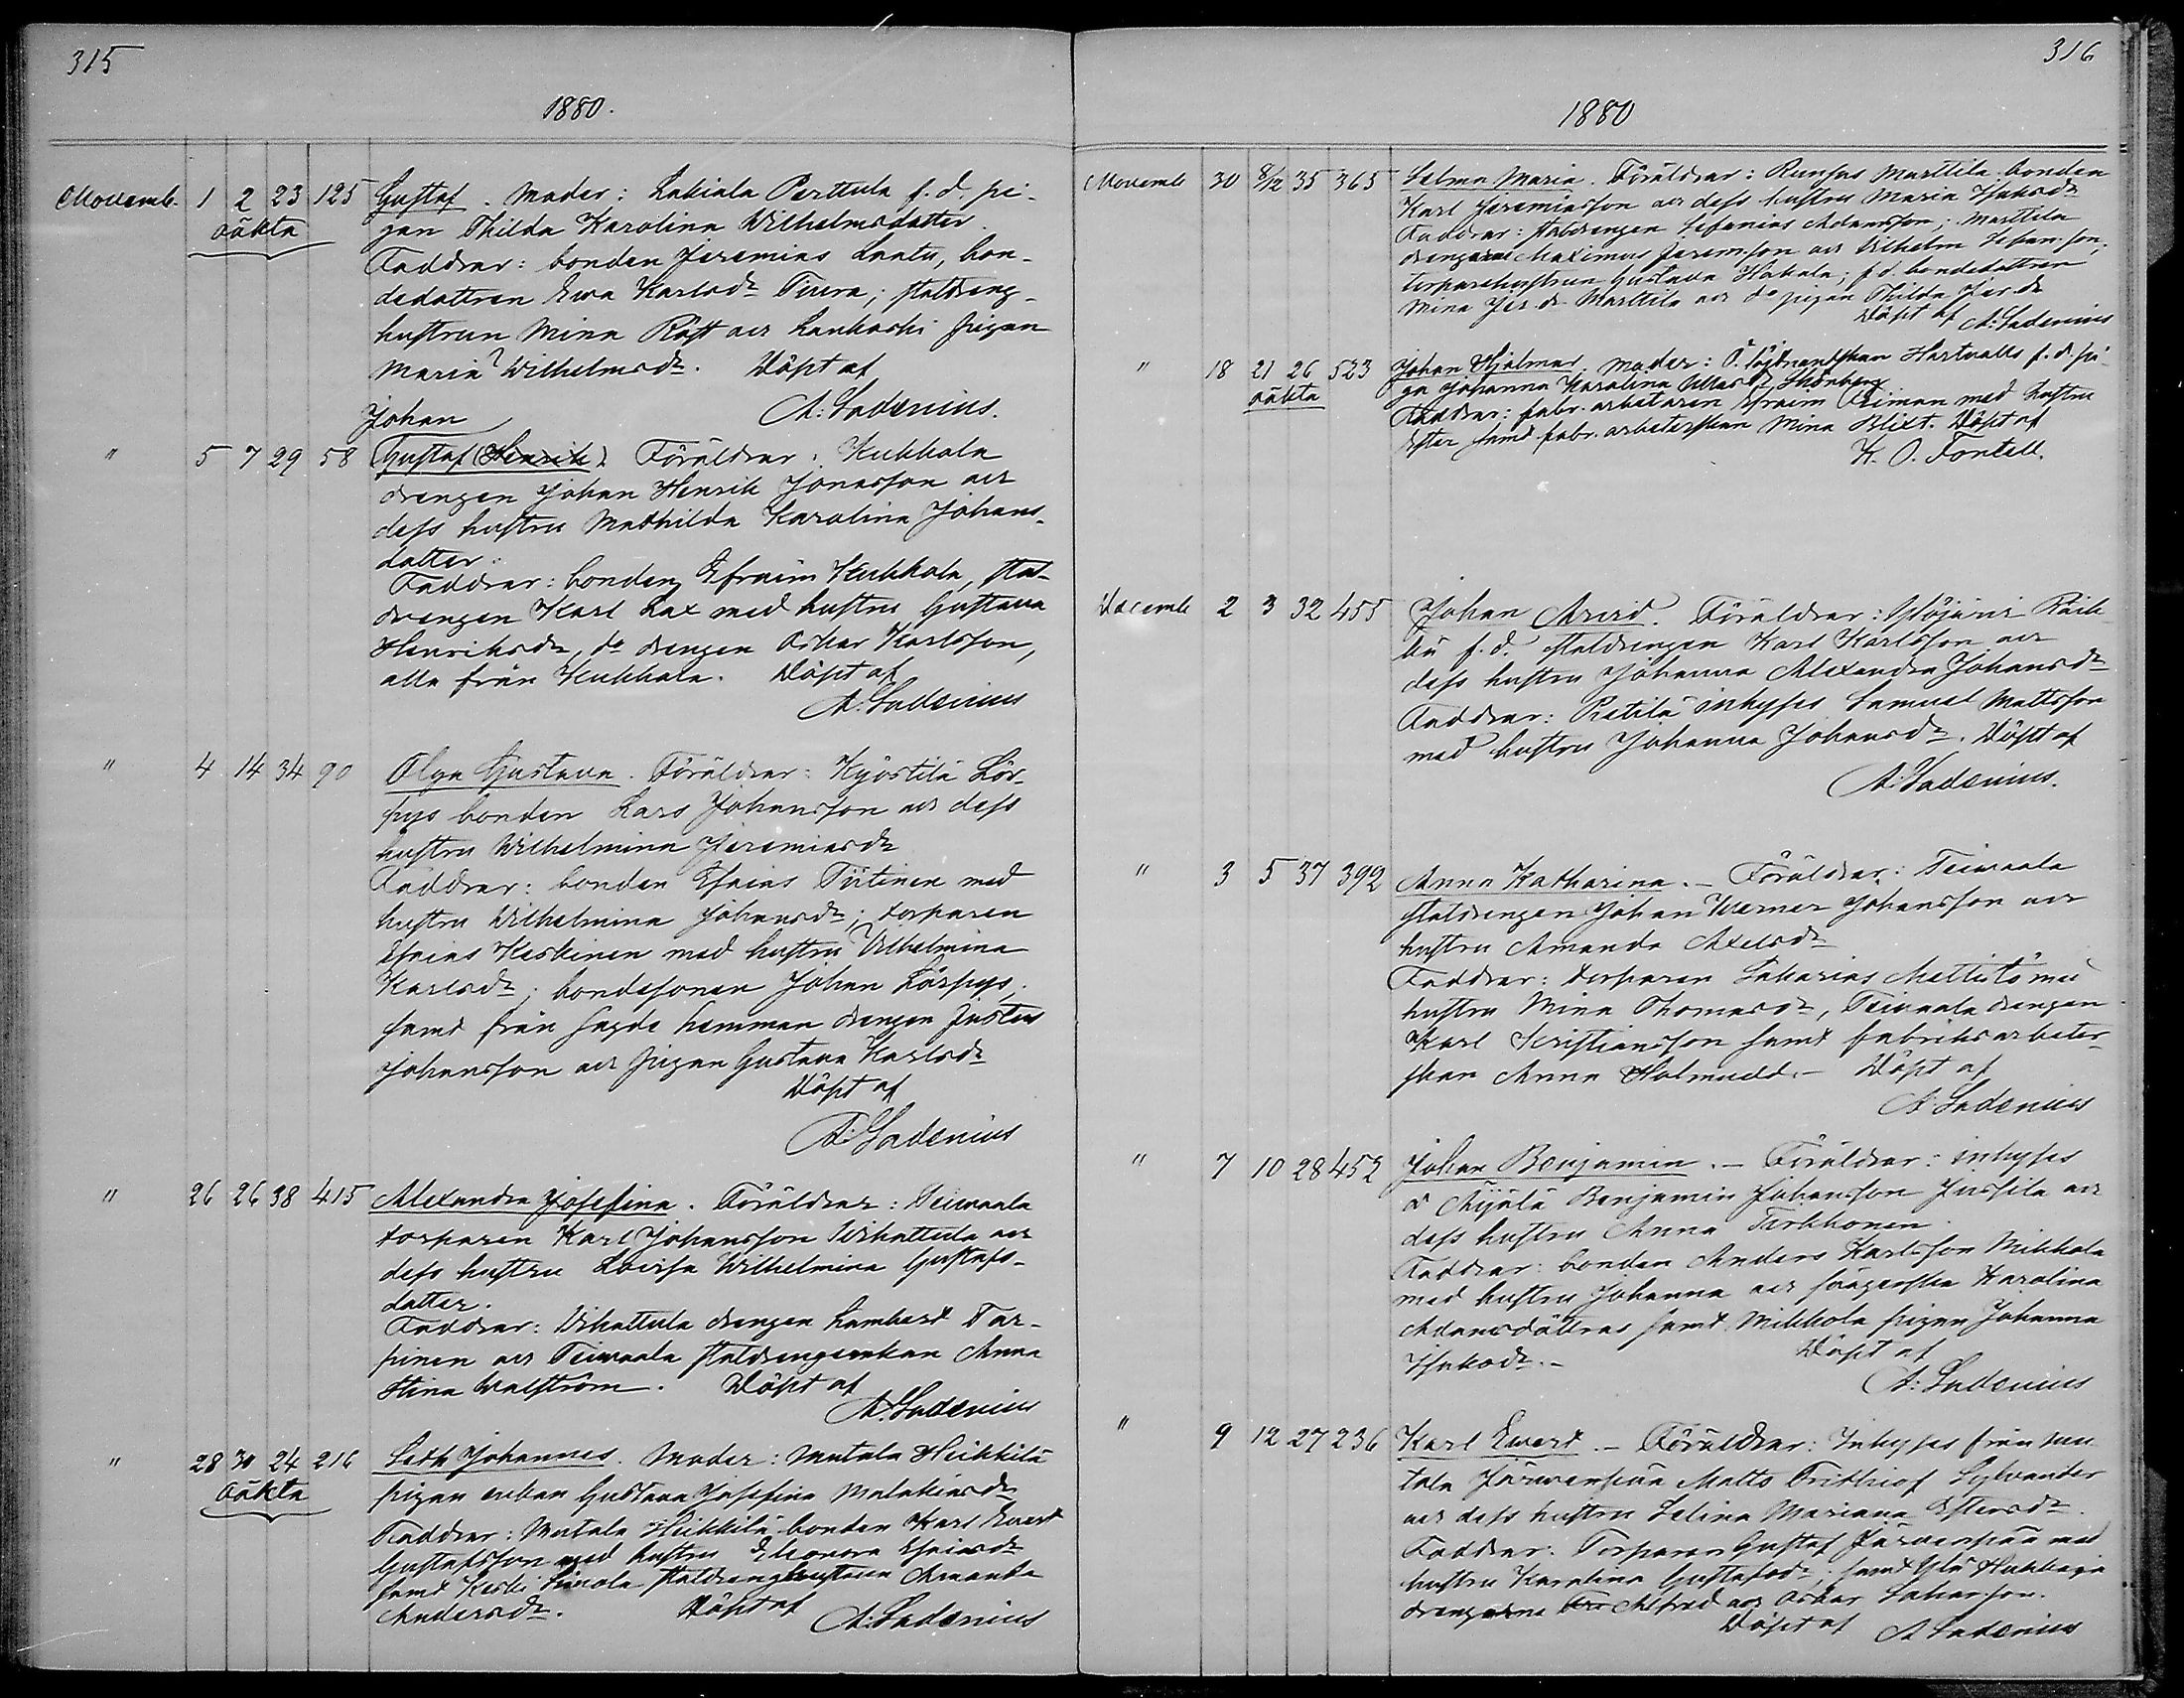 315
1880.
Novemb. 1 2 23 125 Gustaf. Moder: Lakiala Perttula f. d. pi-
oäkta gan Thilda Karolina Wilhelmsdotter.
Faddrar: bonden Jeremias Lantu, bon-
dedottren Ewa Karlsdr Tiura; staldreng-
hustrun Mina Rost och Lankoski pigan
Maria Wilhelmsdr. Döpt af
A. Ladenius.
Johan
" 5 7 29 58 Gustaf (Henrik). Föräldrar: Kukkola
drengen Johan Henrik Jonasson och
dess hustru Mathilda Karolina Johans-
dotter.
Faddrar: bonden Efraim Kukkola, stal-
drengen Karl Lax med hustru Gustava
Henriksdr, do drengen Oskar Karlsson,
alla från Kukkola. Döpt af
A. Ladenius
" 4 14 34 90 Olga Gustava. Föräldrar: Kyöstilä Lör-
pys bonden Lars Johansson och dess
hustru Wilhelmina Jeremiasdr
Faddrar: bonden Esaias Tiitinen med
hustru Wilhelmina Johansdr; torparen
Esaias Keskinen med hustru Vilhelmina
Karlsdr; bondesonen Johan Lörpys,
samt från sagde hemman drengen Justus
Johansson och pigan Gustava Karlsdr
Döpt af
A. Ladenius
" 26 26 38 415 Alexandra Josefina. Föräldrar: Teiwaala
torparen Karl Johansson Vihattula och
dess hustru Lovisa Wilhelmina Gustafs-
dotter.
Faddrar: Vihattula drengen Lambert Tar-
pinen och Teiwaala staldrengsenkan Anna
Stina Walström. Döpt af
A. Ladenius
" 28 30 24 216 Seth Johannes. Moder: Mutala Heikkilä
oäkta pigan enkan Gustava Josefina Malakiasdr
Faddrar: Mutala Heikkilä bonden Karl Evert
Gustafsson med hustru Eleonora Esaiasdr
samt Keski Simola staldrenghustrun Amanda
Andersdr. Döpt af A. Ladenius
316
1880
Novemb 30 8/12 35 365 Selma Maria. Föräldrar: Runsas Marttila bonden
Karl Jeremiasson och dess hustru Maria Isaksdr
Faddrar: staldrengen Sefanias Adamsson; Marttila
drengarne Maximus Jeremson och Vilhelm Sefanson;
torparehustrun Gustava Hakala; f. d. bondedottren
Mina Jer. dr Marttila och do pigan Thilda Jer. dr
Döpt af A. Ladenius
" 18 21 26 523 Johan Hjalmar. Moder: Hartwalls f. d. pi-
oäkta ga Johanna Karolina Stenberg
Faddrar: fabr. arbetaren Efraim Reiman med hustru
Ester samt fabr. arbeterskan Mina Blixt. Döpt af
K. O. Fontell.
Decemb 2 3 32 455 Johan Arvid. Föräldrar: Ylöjärvi Räik-
kä f. d. staldrengen Karl Karlsson och
dess hustru Johanna Alexandra Johansdr
Faddrar: Pietilä inhyses Samuel Mattsson
med hustru Johanna Johansdr. Döpt af
A. Ladenius.
" 3 5 37 392 Anna Katharina. – Föräldrar: Teiwaala
staldrengen Johan Werner Johansson och
hustru Amanda Axelsdr
Faddrar: torparen Sakarias Mettistö med
hustru Mina Thomasdr, Teiwaala drengen
Karl Kristiansson samt fabriksarbeter-
skan Anna Holmudd. – Döpt af
A. Ladenius
" 7 10 28 452 Johan Benjamin. – Föräldrar: inhyses
å Äijälä Benjamin Johansson Jussila och
dess hustru Anna Tirkkonen.
Faddrar: bonden Anders Karlsson Mikkola
med hustru Johanna och svägerska Karolina
Adamsdöttrar samt Mikkola pigan Johanna
Isaksdr. – Döpt af
A. Ladenius
" 9 12 27 236 Karl Evert. – Föräldrar: Inhyses från Mu-
tala Järvenpää Matts Frithiof Sylvander
och dess hustru Selina Mariana
Faddrar: Torparen Gustaf Järvenpää med
hustru Karolina Gustafsdr; samt Ylä Haklaja
drengarne Alfred och Oskar Sakarson.
Döpt af A. Ladenius